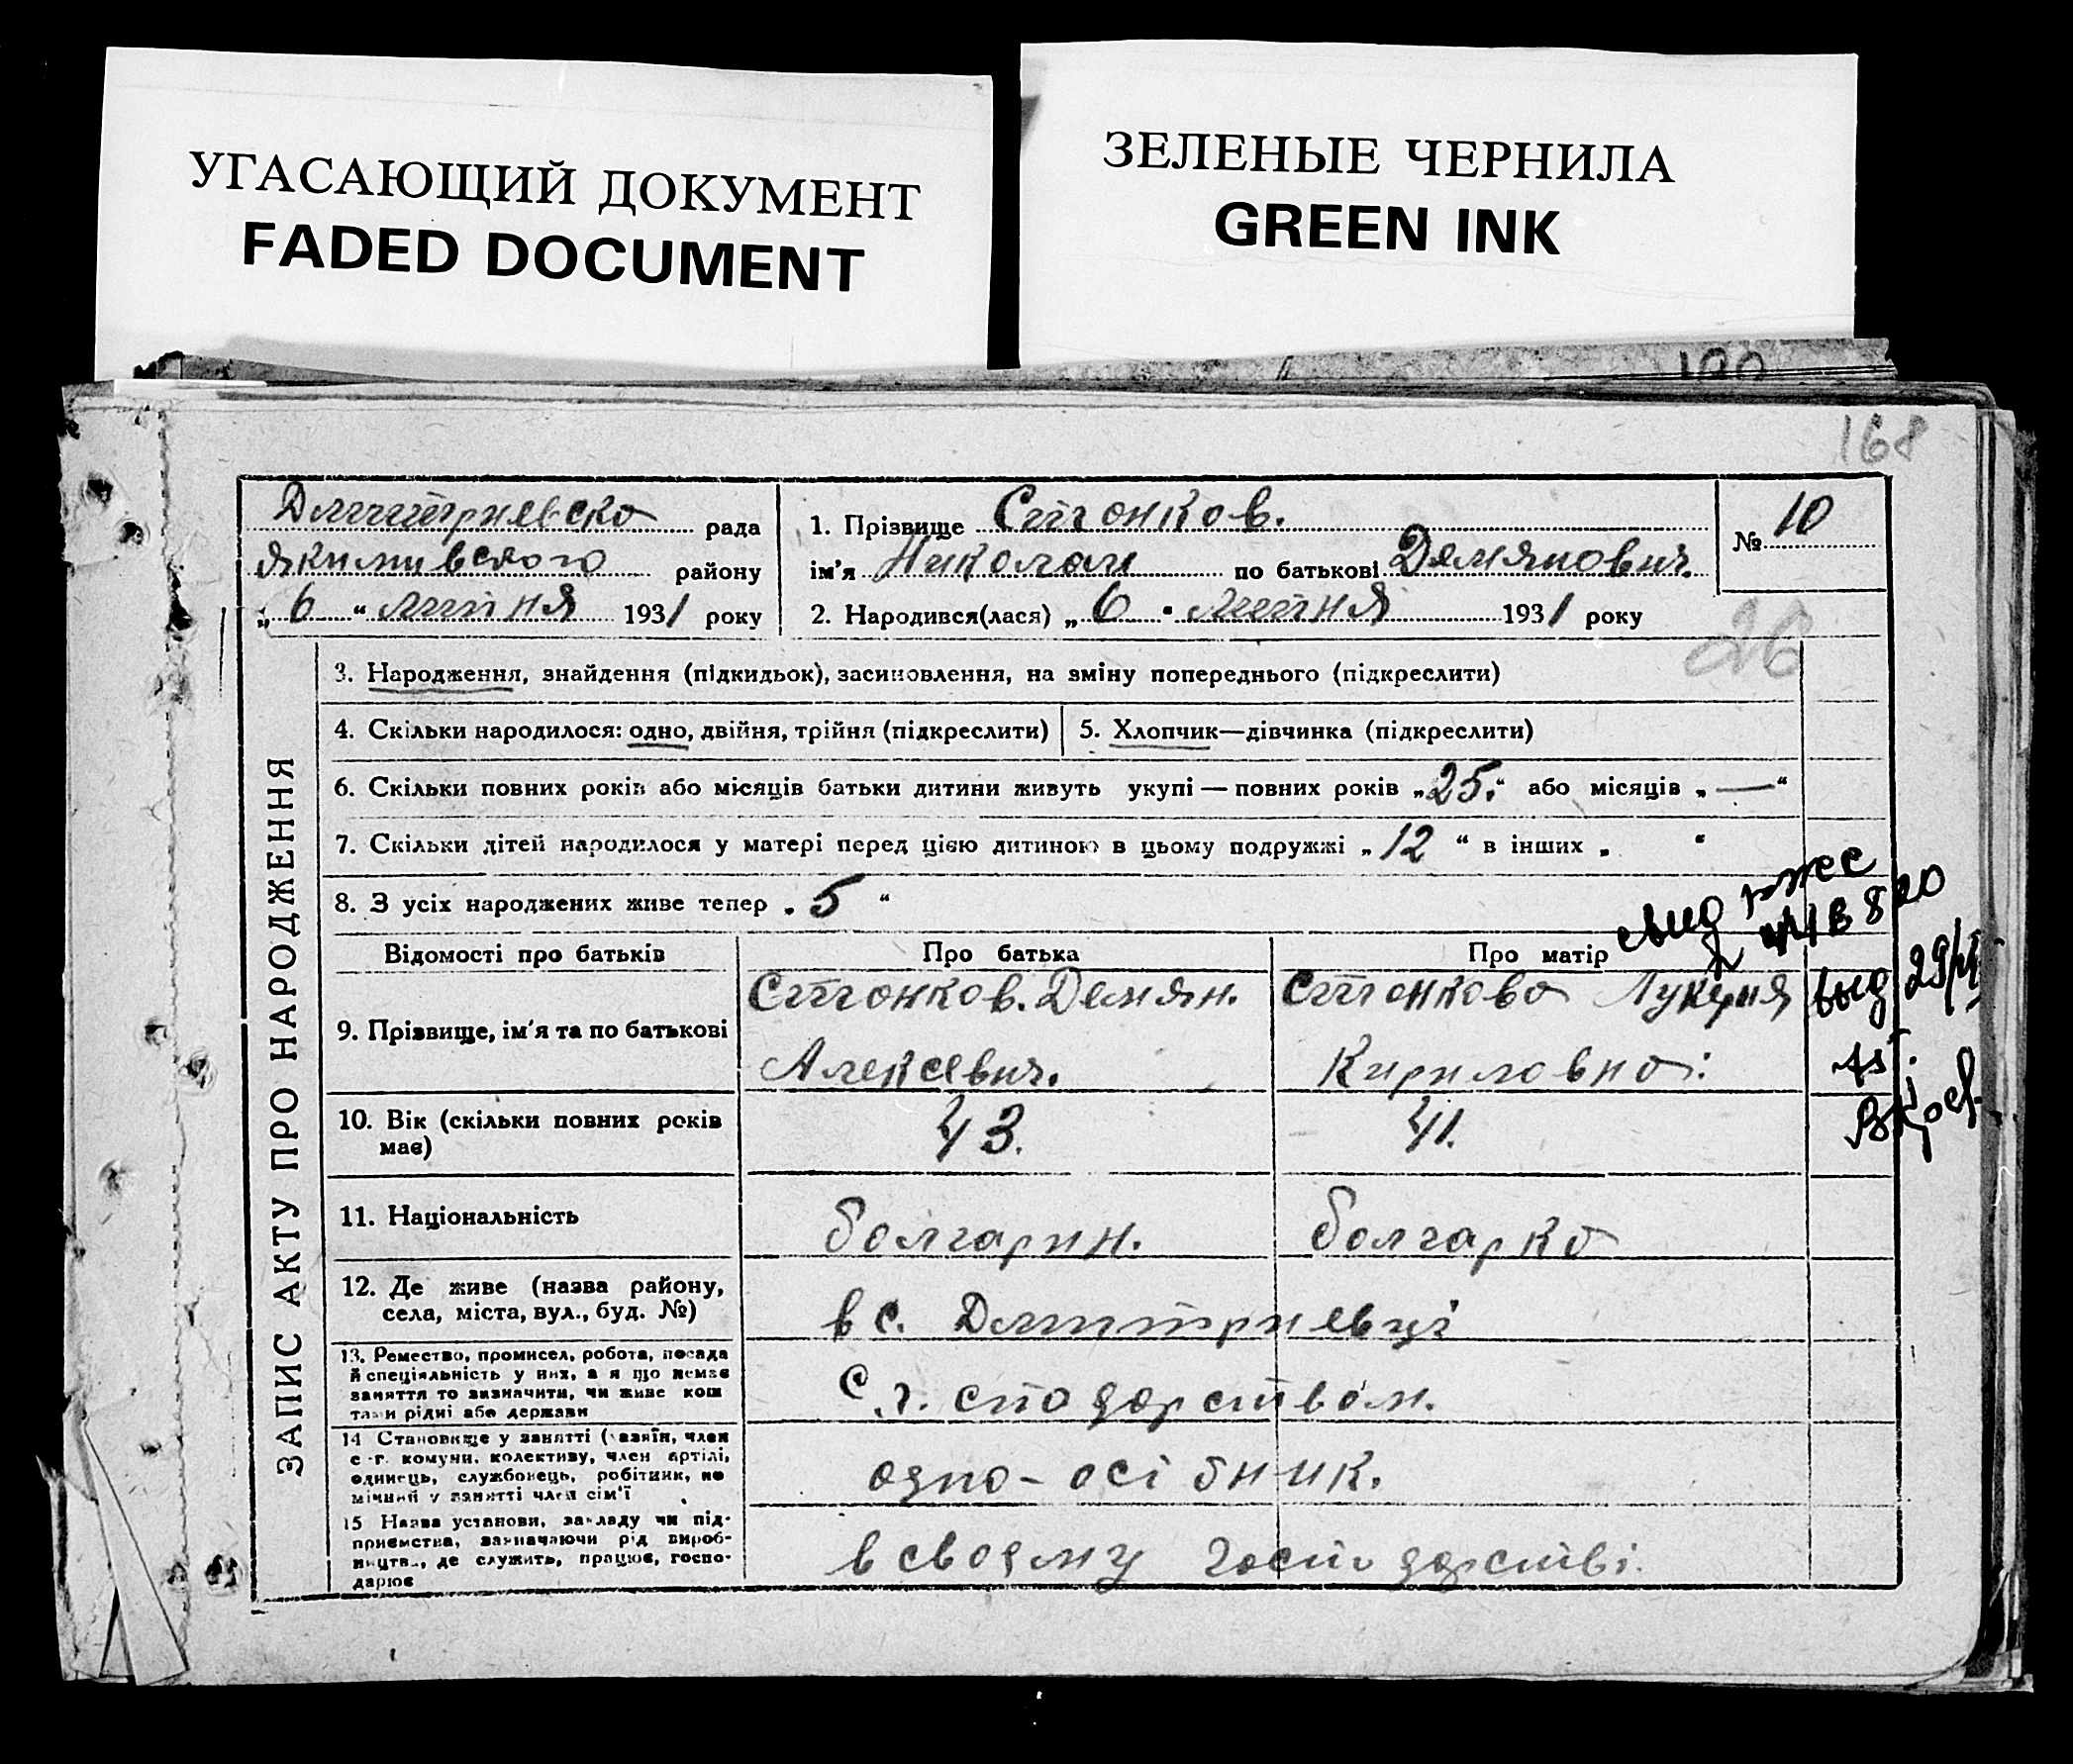 УГАСАЮЩИЙ ДОКУМЕНТ
FADED DOCUMENT
ЗЕЛЕНЫЕ ЧЕРНИЛА
GREEN INK
168
Дмитриевска рада
Якимивского району
„6“ липня 1931 року
1. Прізвище Стоянков.
ім'я Николай по батькові Демянович.
2. Народився(лася) „6“ липня 1931 року
№ 10
26
ЗАПИС АКТУ ПРО НАРОДЖЕННЯ
3. Народження, знайдення (підкидьок), засиновлення, на зміну попереднього (підкреслити)
4. Скільки народилося: одно, двійня, трійня (підкреслити)
5. Хлопчик—дівчинка (підкреслити)
6. Скільки повних років або місяців батьки дитини живуть укупі — повних років „25.“ або місяців „—“
7. Скільки дітей народилося у матері перед цією дитиною в цьому подружжі „12“ в інших „ “
8. З усіх народжених живе тепер „5“
Відомості про батьків
Про батька
Про матір
9. Прізвище, ім'я та по батькові
Демян.
Алексевич.
Лукерия
Кириловна.
выд 29/
10. Вік (скільки повних років
має)
43.
41.
11. Національність
болгарин.
болгарка
12. Де живе (назва району,
села, міста, вул., буд. №)
в с. Дмитриевці
13. Ремество, промисел, робота, посада
й спеціяльність у них, а я що немає
заняття то визначити, чи живе кош
тами рідні або держави
С.г.
14 Становище у занятті (хазяїн, член
с.-г. комуни, колективу, член артілі,
одинець, службовець, робітник, по
мічний у занятті член сім'ї
одно-осібник.
15 Назва установи, закладу чи під-
приємства, зазначаючи рід вироб-
ництва, де служить, працює, госпо-
дарює
в своему господарстві.